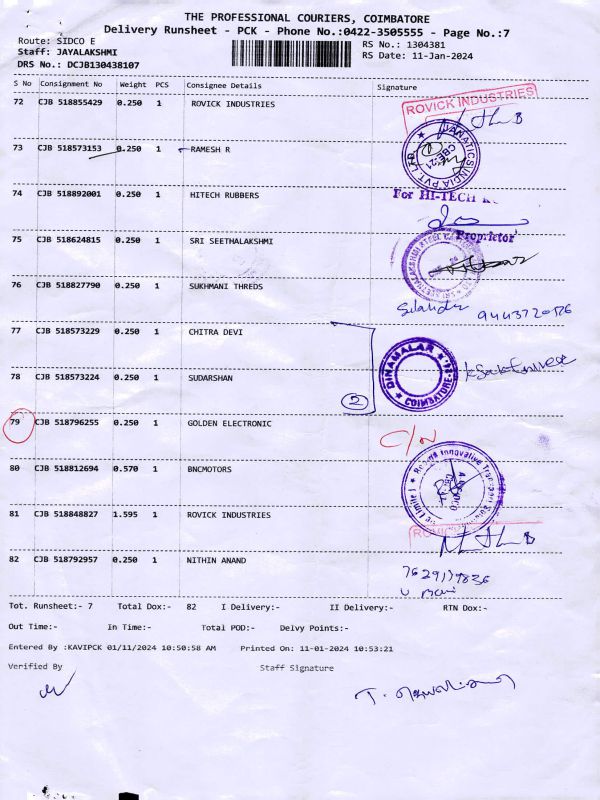 THE PROFESSIONAL COURIERS, COIMBATORE
Delivery Runsheet - PCK - Phone No.:0422-3505555 - Page No.:7
Route: SIDCO E
RS No.: 1304381
Staff: JAYALAKSHMI
RS Date: 11-Jan-2024
DRS No.: DCJB130438107
S No Consignment No Weight PCS Consignee Details Signature
72 CJB 518855429 0.250 1 ROVICK INDUSTRIES
ROVICK INDUSTRIES
73 CJB 518573153 0.250 1 RAMESH R
74 CJB 518892001 0.250 1 HITECH RUBBERS
For HI-TECH
Proprietor
75 CJB 518624815 0.250 1 SRI SEETHALAKSHMI
76 CJB 518827790 0.250 1 SUKHMANI THREDS
77 CJB 518573229 0.250 1 CHITRA DEVI
DINAMALAR
COIMBATORE
78 CJB 518573224 0.250 1 SUDARSHAN
2
79 CJB 518796255 0.250 1 GOLDEN ELECTRONIC
C/N
80 CJB 518812694 0.570 1 BNCMOTORS
81 CJB 518848827 1.595 1 ROVICK INDUSTRIES
82 CJB 518792957 0.250 1 NITHIN ANAND
Tot. Runsheet:- 7 Total Dox:- 82 I Delivery:- II Delivery:- RTN Dox:-
Out Time:- In Time:- Total POD:- Delvy Points:-
Entered By :KAVIPCK 01/11/2024 10:50:58 AM Printed On: 11-01-2024 10:53:21
Verified By Staff Signature